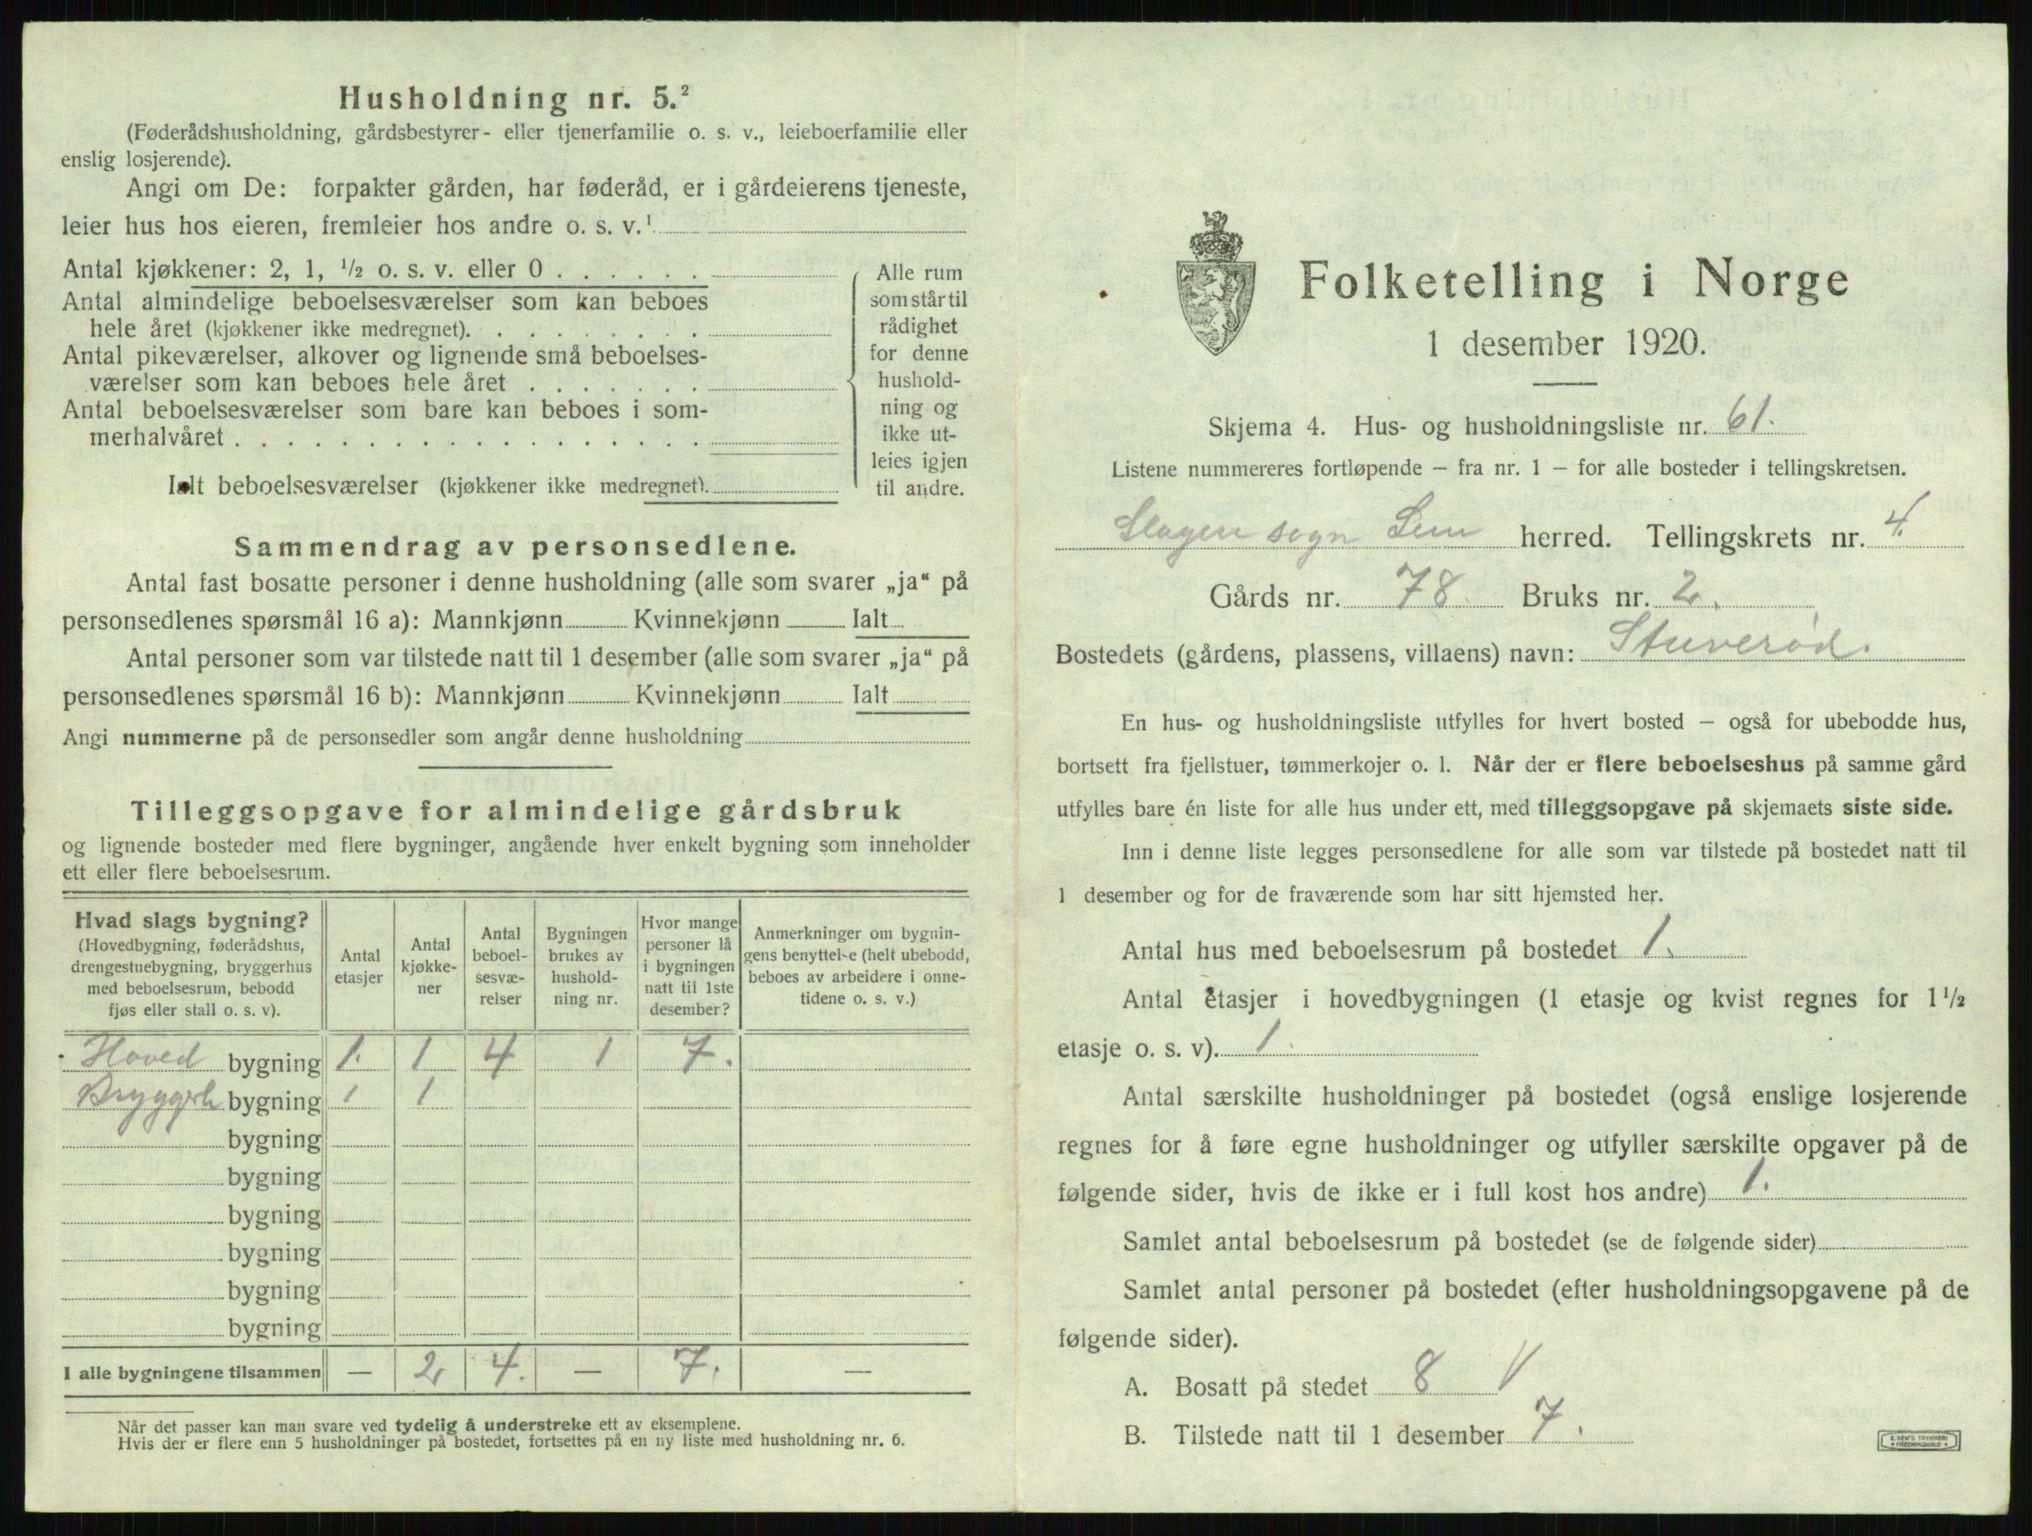 Husholdning nr. 5.²
(Føderådshusholdning, gårdsbestyrer- eller tjenerfamilie o. s. v., leieboerfamilie eller
enslig losjerende).
Angi om De: forpakter gården, har føderåd, er i gårdeierens tjeneste,
leier hus hos eieren, fremleier hos andre o. s. v.¹
Antal kjøkkener: 2, 1, ½ o. s. v. eller 0 . . . . . .
Antal almindelige beboelsesværelser som kan beboes
hele året (kjøkkener ikke medregnet). . . . . . . . .
Antal pikeværelser, alkover og lignende små beboelses-
værelser som kan beboes hele året . . . . . . .
Antal beboelsesværelser som bare kan beboes i som-
merhalvåret . . . . . . . . . . . . . . . . .
Ialt beboelsesværelser (kjøkkener ikke medregnet).
Alle rum
som står til
rådighet
for denne
hushold-
ning og
ikke ut-
leies igjen
til andre.
Sammendrag av personsedlene.
Antal fast bosatte personer i denne husholdning (alle som svarer „ja“ på
personsedlenes spørsmål 16 a): Mannkjønn Kvinnekjønn Ialt
Antal personer som var tilstede natt til 1 desember (alle som svarer „ja“ på
personsedlenes spørsmål 16 b): Mannkjønn Kvinnekjønn Ialt
Angi nummerne på de personsedler som angår denne husholdning
Tilleggsopgave for almindelige gårdsbruk
og lignende bosteder med flere bygninger, angående hver enkelt bygning som inneholder
ett eller flere beboelsesrum.
Hvad slags bygning?
(Hovedbygning, føderådshus,
drengestuebygning, bryggerhus
med beboelsesrum, bebodd
fjøs eller stall o. s. v).
Antal
etasjer
Antal
kjøkke-
ner
Antal
beboel-
sesvæ-
relser
Bygningen
brukes av
hushold-
ning nr.
Hvor mange
personer lå
i bygningen
natt til 1ste
desember?
Anmerkninger om bygnin-
gens benyttelse (helt ubebodd,
beboes av arbeidere i onne-
tidene o. s. v.)
Hoved bygning 1. 1 4 1 7.
Bryggerh bygning 1 1
bygning
bygning
bygning
bygning
bygning
bygning
I alle bygningene tilsammen — 2 4. — 7. —
Når det passer kan man svare ved tydelig å understreke ett av eksemplene.
Hvis der er flere enn 5 husholdninger på bostedet, fortsettes på en ny liste med husholdning nr. 6.
Folketelling i Norge
1 desember 1920.
Skjema 4. Hus- og husholdningsliste nr. 61.
Listene nummereres fortløpende – fra nr. 1 – for alle bosteder i tellingskretsen.
Slagen sogn Sem herred. Tellingskrets nr. 4.
Gårds nr. 78. Bruks nr. 2.
Bostedets (gårdens, plassens, villaens) navn: Stuverød.
En hus- og husholdningsliste utfylles for hvert bosted – også for ubebodde hus,
bortsett fra fjellstuer, tømmerkojer o. l. Når der er flere beboelseshus på samme gård
utfylles bare én liste for alle hus under ett, med tilleggsopgave på skjemaets siste side.
Inn i denne liste legges personsedlene for alle som var tilstede på bostedet natt til
1 desember og for de fraværende som har sitt hjemsted her.
Antal hus med beboelsesrum på bostedet 1.
Antal etasjer i hovedbygningen (1 etasje og kvist regnes for 1½
etasje o. s. v). 1.
Antal særskilte husholdninger på bostedet (også enslige losjerende
regnes for å føre egne husholdninger og utfyller særskilte opgaver på de
følgende sider, hvis de ikke er i full kost hos andre) 1.
Samlet antal beboelsesrum på bostedet (se de følgende sider)
Samlet antal personer på bostedet (efter husholdningsopgavene på de
følgende sider).
A. Bosatt på stedet 8 V
B. Tilstede natt til 1 desember 7.
E. SEM'S TRYKKERI
• FREDRIKSHALD •